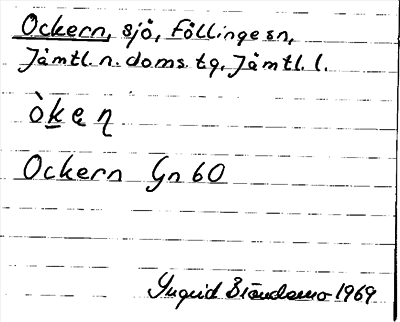 Ockern, sjö, Föllinge sn,
Jämtl. n. doms. tg, Jämtl. l.
òkeη
Ockern Gn 60
Ingrid Brändemo 1969